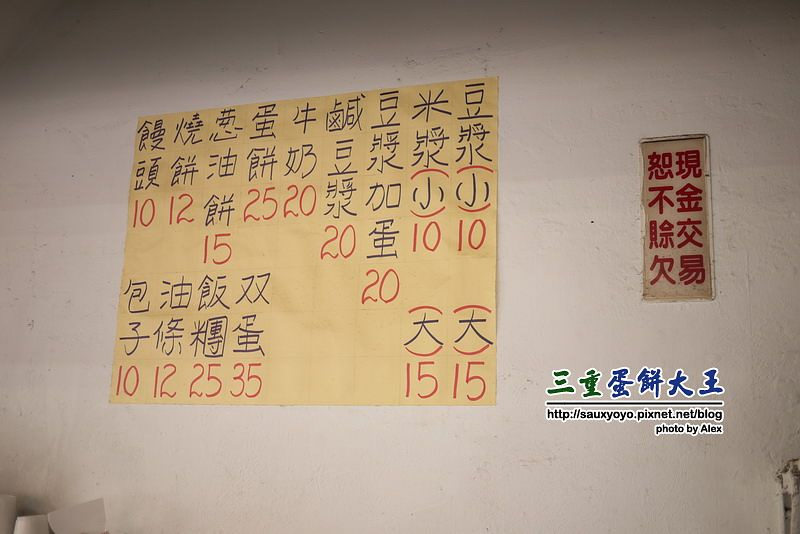 豆漿(小)10
(大)15
米漿(小)10
(大)15
豆漿加蛋20
鹹豆漿20
牛奶20
蛋餅25
葱油餅15
燒餅12
饅頭10
双蛋35
飯糰25
油條12
包子10
現金交易
恕不賒欠
三重蛋餅大王
http://sauxyoyo.pixnet.net/blog
photo by Alex